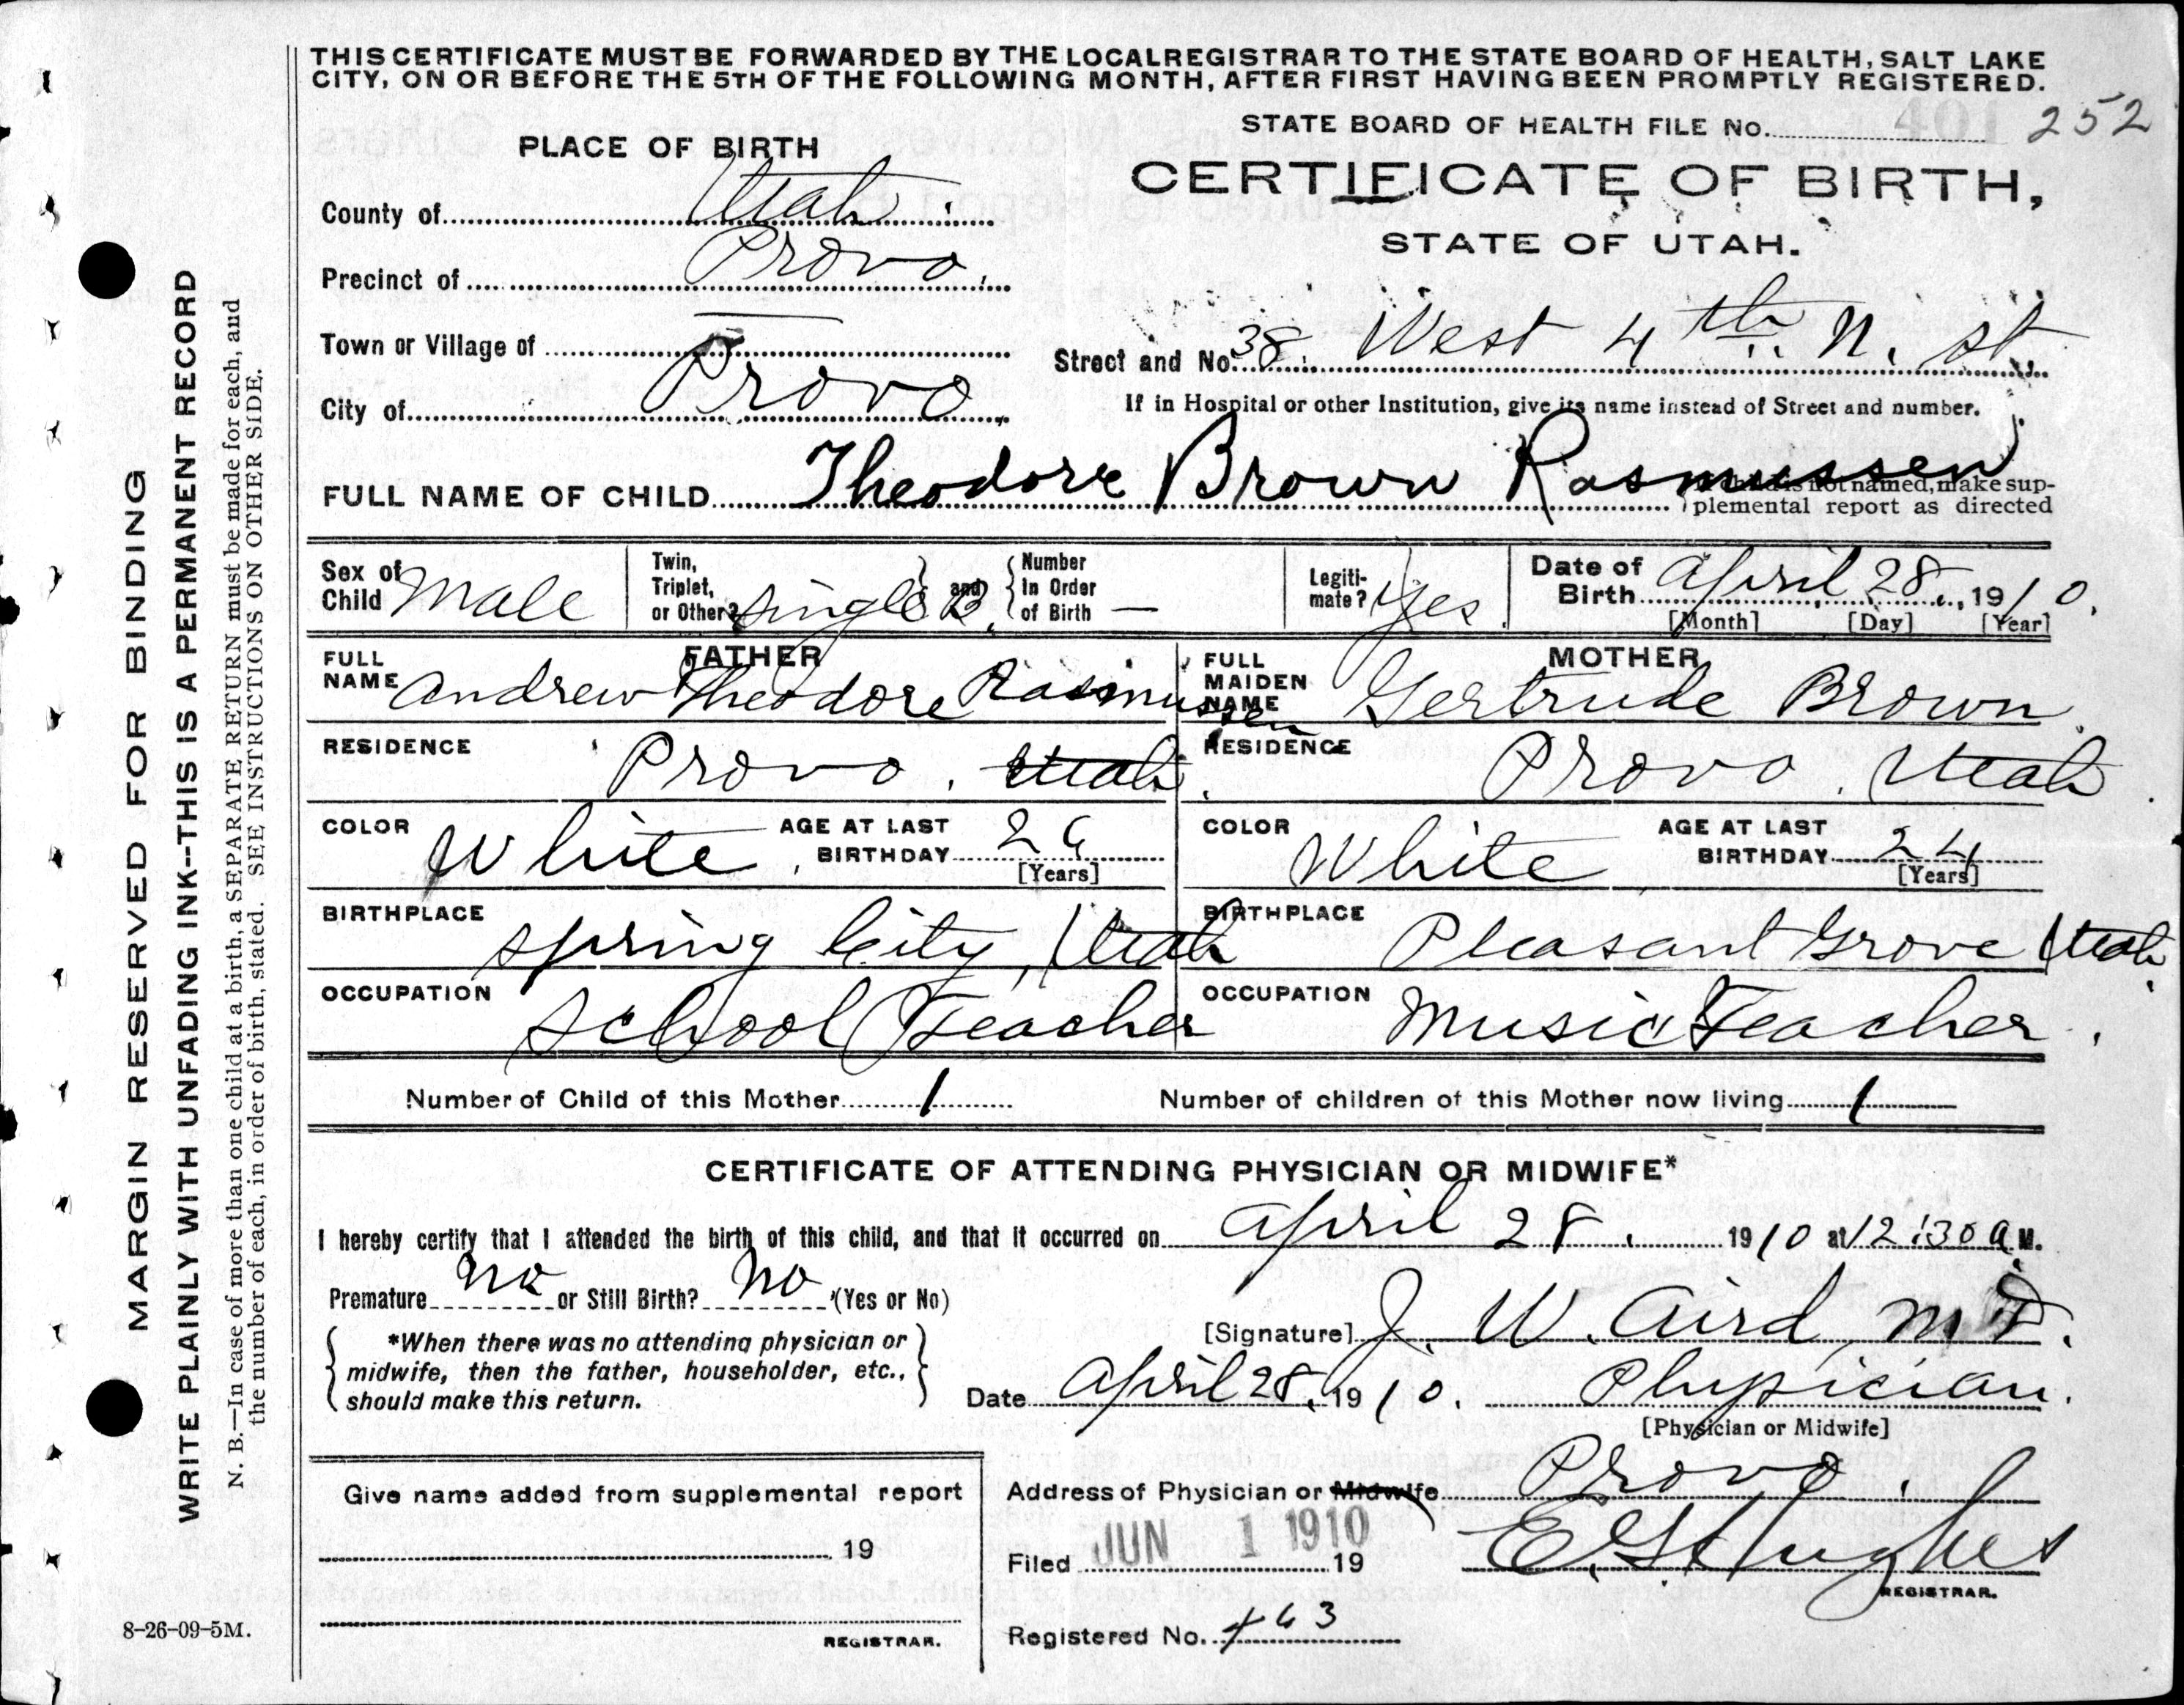 THIS CERTIFICATE MUST BE FORWARDED BY THE LOCAL REGISTRAR TO THE STATE BOARD OF HEALTH, SALT LAKE
CITY, ON OR BEFORE THE 5TH OF THE FOLLOWING MONTH, AFTER FIRST HAVING BEEN PROMPTLY REGISTERED.
STATE BOARD OF HEALTH FILE No. 252
PLACE OF BIRTH
CERTIFICATE OF BIRTH,
STATE OF UTAH.
County of Utah
Precinct of Provo.
Town or Village of
Street and No. 38 West 4th N. st.
City of Provo.
If in Hospital or other Institution, give its name instead of Street and number.
FULL NAME OF CHILD Theodore Brown Rasmussen
If child is not named, make sup-
plemental report as directed
Sex of Child Male
Twin, Triplet, or Other? Single and Number In Order of Birth —
Legiti-mate? Yes.
Date of Birth April 28, 1910.
[Month] [Day] [Year]
FATHER
FULL NAME Andrew Theodore Rasmussen
RESIDENCE Provo. Utah.
COLOR White. AGE AT LAST BIRTHDAY 26
[Years]
BIRTHPLACE Spring City, Utah
OCCUPATION School Teacher
MOTHER
FULL MAIDEN NAME Gertrude Brown.
RESIDENCE Provo. Utah.
COLOR White AGE AT LAST BIRTHDAY 24
[Years]
BIRTHPLACE Pleasant Grove Utah.
OCCUPATION Music Teacher.
Number of Child of this Mother 1
Number of children of this Mother now living 1
CERTIFICATE OF ATTENDING PHYSICIAN OR MIDWIFE*
I hereby certify that I attended the birth of this child, and that it occurred on April 28. 1910 at 12:30 a M.
Premature no or Still Birth? No (Yes or No)
*When there was no attending physician or
midwife, then the father, householder, etc.,
should make this return.
[Signature] J. W. Aird M.D.
Date April 28, 1910. Physician.
[Physician or Midwife]
Address of Physician or Midwife Provo.
Give name added from supplemental report
19
REGISTRAR.
Filed JUN 1 1910 19 E. G. Hughes
REGISTRAR.
Registered No. 463
8-26-09-5M.
MARGIN RESERVED FOR BINDING
WRITE PLAINLY WITH UNFADING INK--THIS IS A PERMANENT RECORD
N. B.—In case of more than one child at a birth, a SEPARATE RETURN must be made for each, and
the number of each, in order of birth, stated. SEE INSTRUCTIONS ON OTHER SIDE.